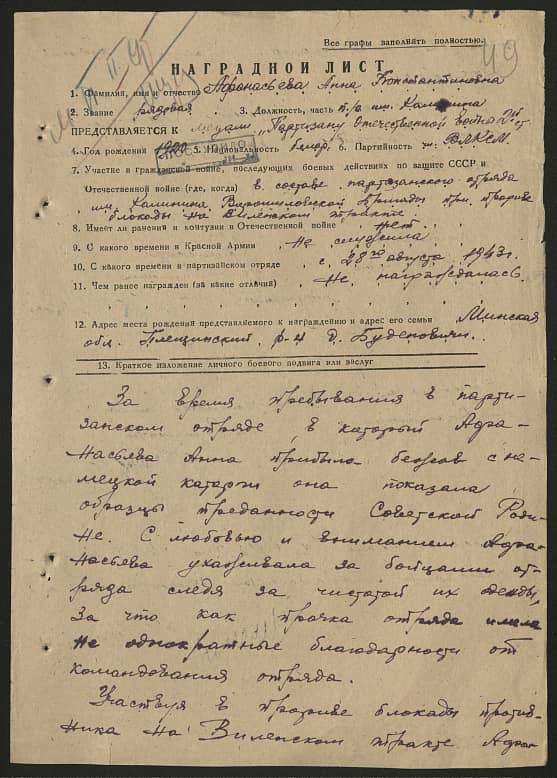 Все графы заполнять полностью.
49
НАГРАДНОЙ ЛИСТ
1. Фамилия, имя и отчество Афанасьева Анна Константиновна
2. Звание рядовая 3. Должность, часть п/о им. Калинина
ПРЕДСТАВЛЯЕТСЯ К медали „Партизану Отечественной войны 2й ст
4. Год рождения 5. Национальность белор. 6. Партийность чл. ВЛКСМ
7. Участие в гражданской войне, последующих боевых действиях по защите СССР и
Отечественной войне (где, когда) в составе партизанского отряда
им. Калинина Ворошиловской бригады при прорыве
блокады на Виленском тракте
8. Имеет ли ранения и контузии в Отечественной войне нет.
9. С какого времени в Красной Армии не служила
10. С какого времени в партизанском отряде с 28го августа 1943 г.
11. Чем ранее награжден (за какие отличия) Не награждалась
12. Адрес места рождения представляемого к награждению и адрес его семьи Минская
обл. Плещинский р-н д. Буденовичи.
13. Краткое изложение личного боевого подвига или заслуг
За время пребывания в парти-
занском отряде, в каторый Афа-
насьева Анна прибыла бежав с не-
мецкой каторги она показала
образцы преданности Советской Роди-
не. С любовью и вниманием Афа-
насьева ухаживала за бойцами от-
ряда следя за чистатой их одежды,
За что как прачка отряда имела
не однократные благодарности от
командования отряда.
Участвуя в прорыве блокады против-
ника на Виленском тракте Афа-